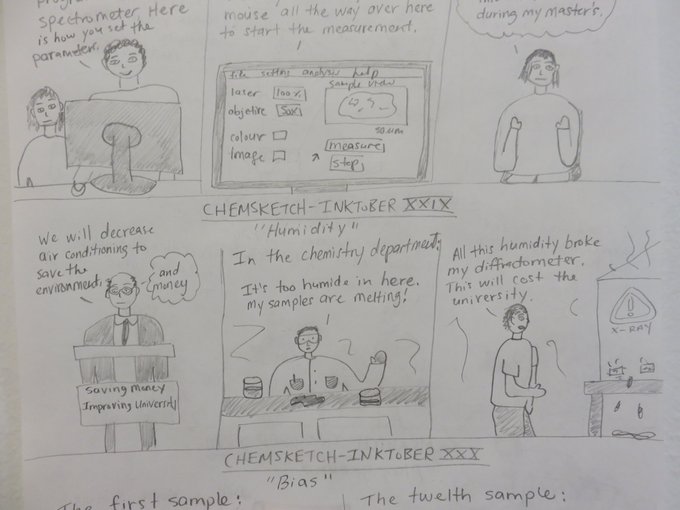 spectrometer. Here
is how you set the
parameters.
mouse all the way over here
to start the measurement.
during my master's.
file setting analyse help
sample view
laser 100%
objetive 50x
colour
Image
50 um
measure
stop
CHEMSKETCH-INKTOBER XXIX
"Humidity"
We will decrease
air conditioning to
save the
environment
and
money
Saving money
Improving University
In the chemistry department:
It's too humide in here.
my samples are melting!
All this humidity broke
my diffractometer.
This will cost the
university.
X-RAY
CHEMSKETCH-INKTOBER XXX
"Bias"
The first sample:
The twelth sample: